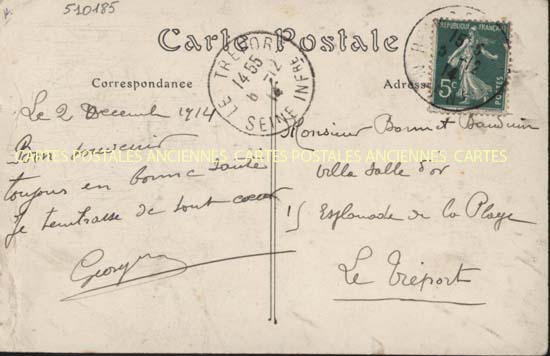 510185
Carte Postale
Correspondance
Adresse
LE TREPORT
14-55
6-12
14
SEINE INFRE
5c
POSTES
Le 2 Decembre 1914
Bon souvenir
toujours en bonne santé
Je t'embrasse de tout coeur
Georges
CARTES POSTALES ANCIENNES CARTES POSTALES ANCIENNES CARTES
Monsieur Bonnet Bauduin
Villa Salle d'or
15 Esplanade de la Plage
Le Tréport